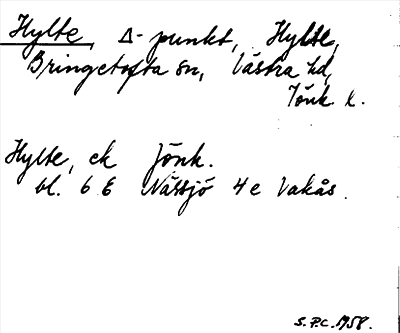 Hylte, Δ-punkt, Hylte,
Bringetofta sn, Västra hd,
Jönk l.
Hylte, ek Jönk.
bl. 6 E Nässjö 4 e Vakås.
S.P.C. 1958.